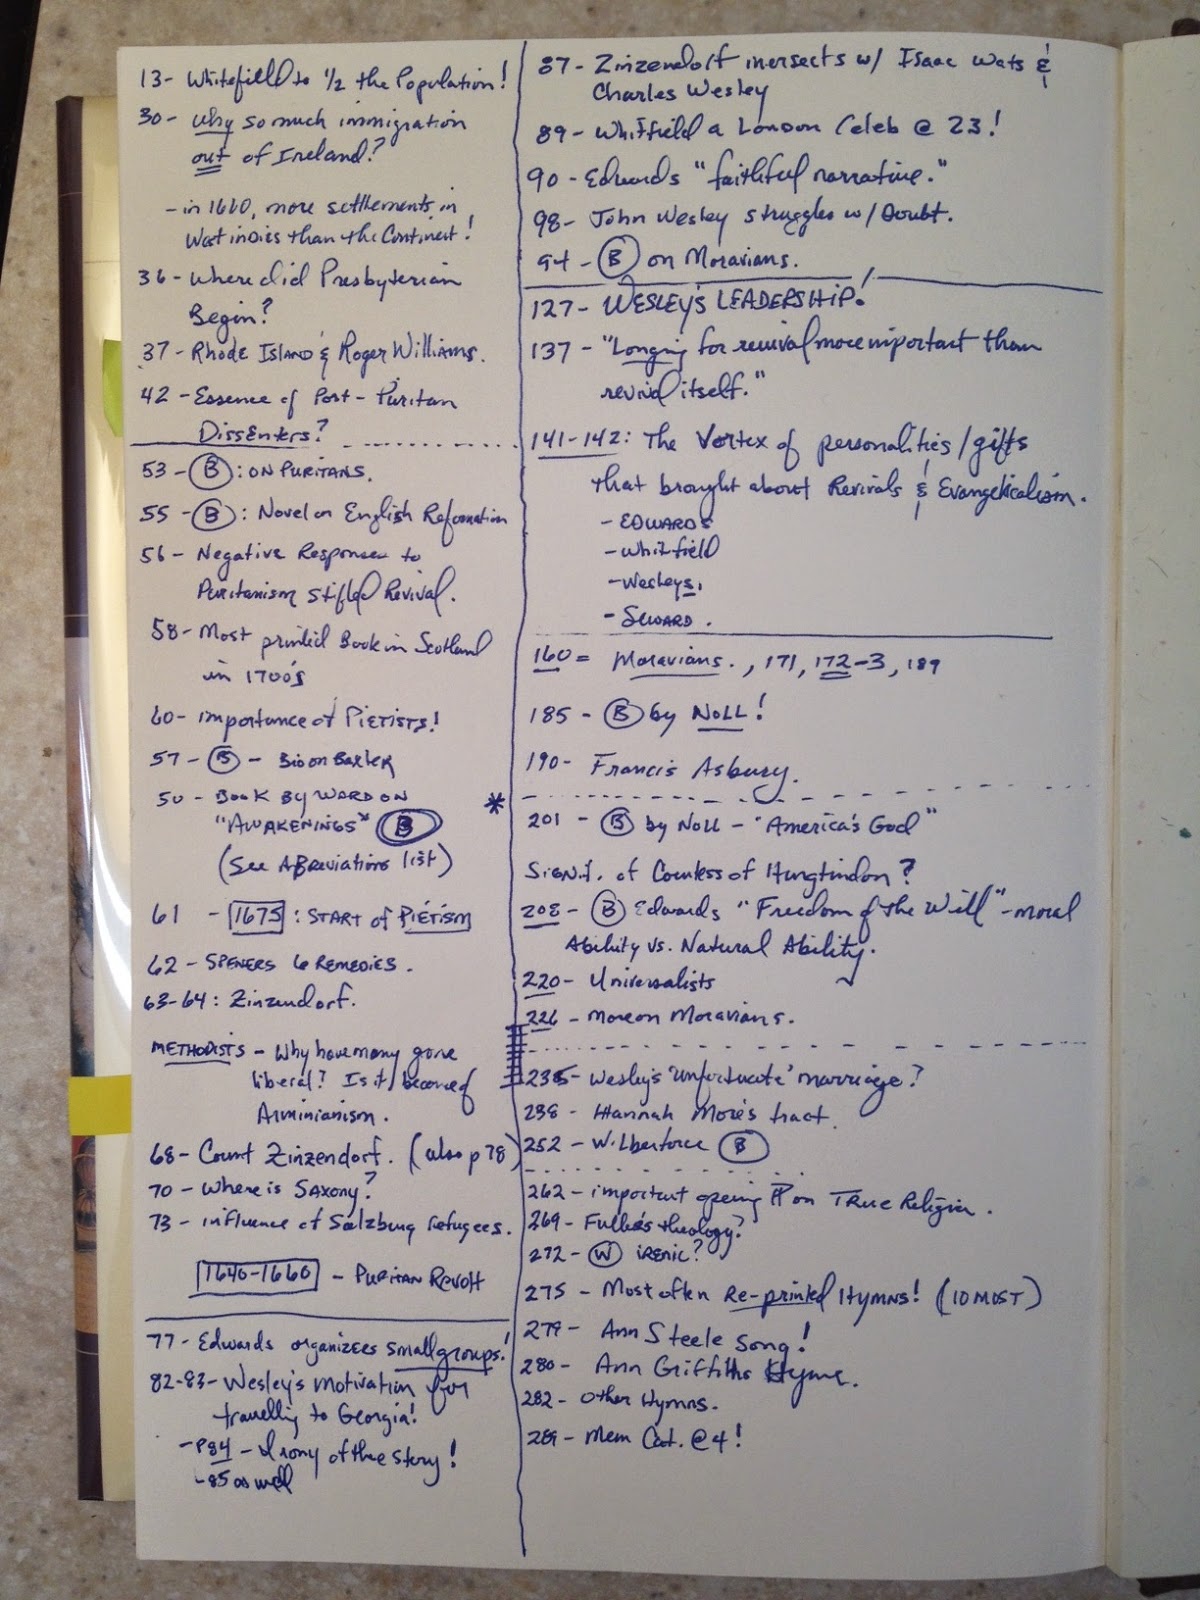 13- Whitefield to 1/2 the Population!
30- why so much immigration
out of Ireland?
- in 1660, more settlements in
West indies than the Continent!
36- where did Presbyterian
Begin?
37- Rhode Island & Roger Williams.
42 - Essence of Post-Puritan
Dissenters?
53 - B : ON PURITANS.
55 - B : Novel on English Reformation
56 - Negative Responses to
Puritanism stifled Revival.
58- Most printed Book in Scotland
in 1700's
60- importance of PIETISTS!
57 - B - Bio on Baxter
50 - BOOK BY WARD ON
"AWAKENINGS" B *
(See ABreviations list)
61 - 1675 : START of PIETISM
62 - SPENERS 6 REMEDIES.
63-64: Zinzendorf.
METHODISTS - Why have many gone
liberal? Is it because of
Arminianism.
68- Count Zinzendorf. (also p 78)
70 - Where is SAXONY?
73 - influence of Salzburg refugees.
1640-1660 - PURITAN REVOLT
77- Edwards organizes small groups!
82-83- Wesley's motivation for
travelling to Georgia!
- P84 - Irony of the story!
- 85 as well
87- Zinzendorf inersects w/ Isaac Wats &
Charles Wesley
89- Whitfield a London Celeb @ 23!
90 - Edwards "faithful narrative."
98- John Wesley struggles w/ Doubt.
94 - B on Moravians.
127- WESLEY'S LEADERSHIP!
137 - "Longing for revival more important than
revival itself."
141-142: The Vortex of personalities/gifts
that brought about Revivals & Evangelicalism.
- EDWARDS
- Whitfield
- Wesleys,
- SEWARD.
160 = Moravians., 171, 172-3, 189
185 - B by NOLL!
190- Francis Asbury.
201 - B by NOLL - "America's God"
SIGNIF. of Countess of Hungtindon?
208 - B Edwards "Freedom of the Will" - moral
Ability vs. Natural Ability.
220- Universalists
226 - more on Moravians.
235- Wesley's 'unfortunate' marriage?
238- Hannah More's tract.
252 - Wilberforce B
262 - important opening P on TRUE Religion.
269- Fuller's theology?
272- W IRENIC?
275 - Most often Re-printed HYMNS! (10 MOST)
279- Ann Steele Song!
280- Ann Griffiths Hymn.
282- other Hymns.
289- Mem Cat. @ 4!